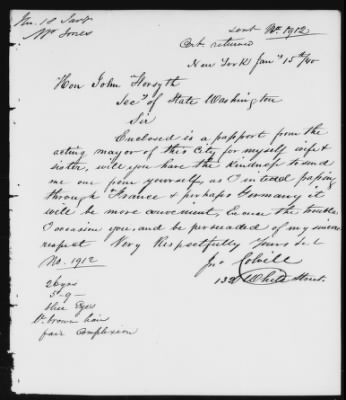 Mr Jones
sent No 1912
Cert returned
New York Jany 15th/40
Hon John Forsyth
Secy of State Washington
Sir
Enclosed is a passport from the
acting mayor of this City for myself wife &
sister, will you have the kindness to send
me one from yourself, as I intend passing
through France & perhaps Germany it
will be more convenient, Excuse the trouble
I occasion you, and be persuaded of my sincere
respect Very Respectfully Yours &c
No. 1912
Jno Colvill
White Street.
26 yrs
5 - 9 -
blue Eyes
lt. brown hair
fair Complexion